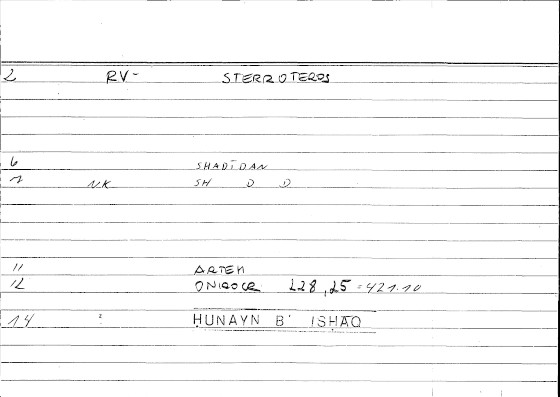 2 RV- STERROTEROS
6 SHADĪDAN
7 NK SH D D
11 ARTEM
12 ONIROCR 228,25 = 421.10
14 " ḤUNAYN B' ISḤĀQ